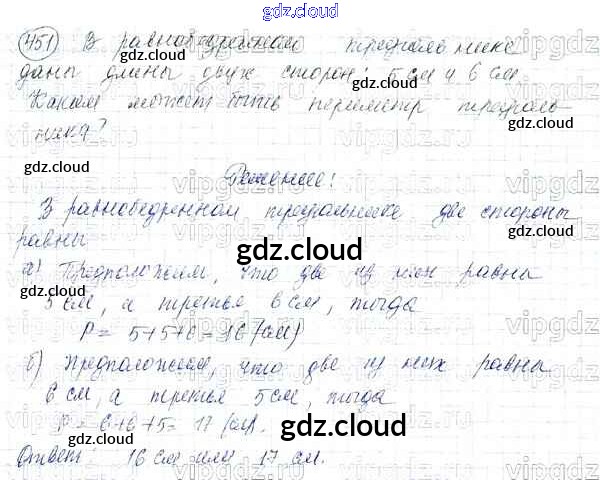 gdz.cloud
451 В равнобедренном треугольнике
даны длины двух сторон: 5 см и 6 см.
Каким может быть периметр треуголь-
ника?
gdz.cloud
Решение:
В равнобедренном треугольнике две стороны
равны
gdz.cloud
а) Предположим, что две из них равны
5 см, а третья 6 см, тогда
P = 5+5+6 = 16 (см)
б) Предположим, что две из них равны
6 см, а третья 5 см, тогда
P = 6+6+5 = 17 (см).
gdz.cloud
Ответ: 16 см или 17 см.
gdz.cloud